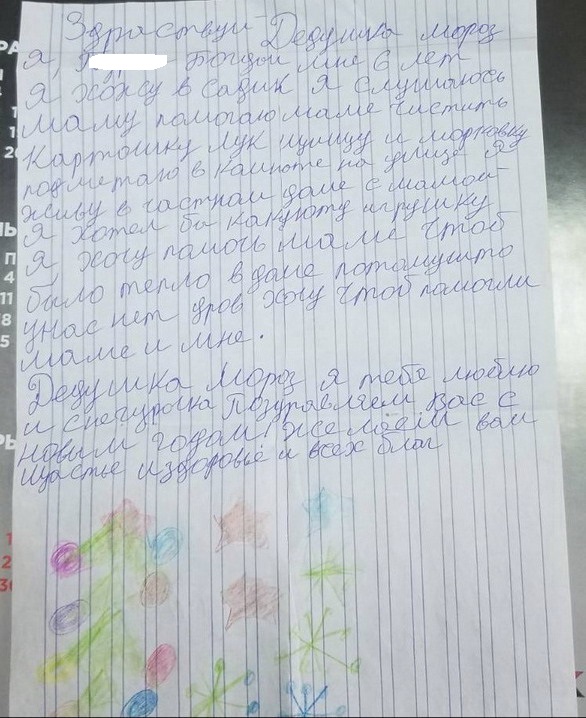 Здраствуй Дедушка мороз
Я, Богдан мне 6 лет
Я хожу в садик я слушаюсь
маму помогаю маме чистить
Картошку лук пшицу и морковку
подметаю в комноте на улице я
живу в частном даме с мамой
Я хотел бы какуюто игрушку
Я, хочу помочь маме чтоб
было тепло в доме потомушто
унас нет дров хочу чтоб помогли
маме и мне.
Дедушка Мороз я тебя люблю
и снегурочка Поздравляем Вас с
новым годом! желаем вам
щастье издоровье и всех благ